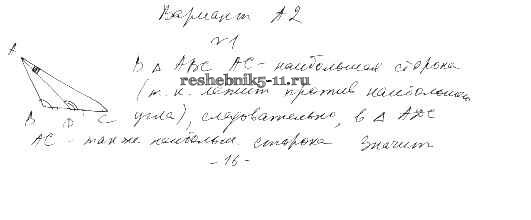 Вариант А2
№1
А
В Δ АВС АС - наибольшая сторона
reshebnik5-11.ru
(т. к. лежит против наибольшего
В D С
угла), следовательно, в Δ АDС
АС - также наибольш. сторона Значит
- 16 -